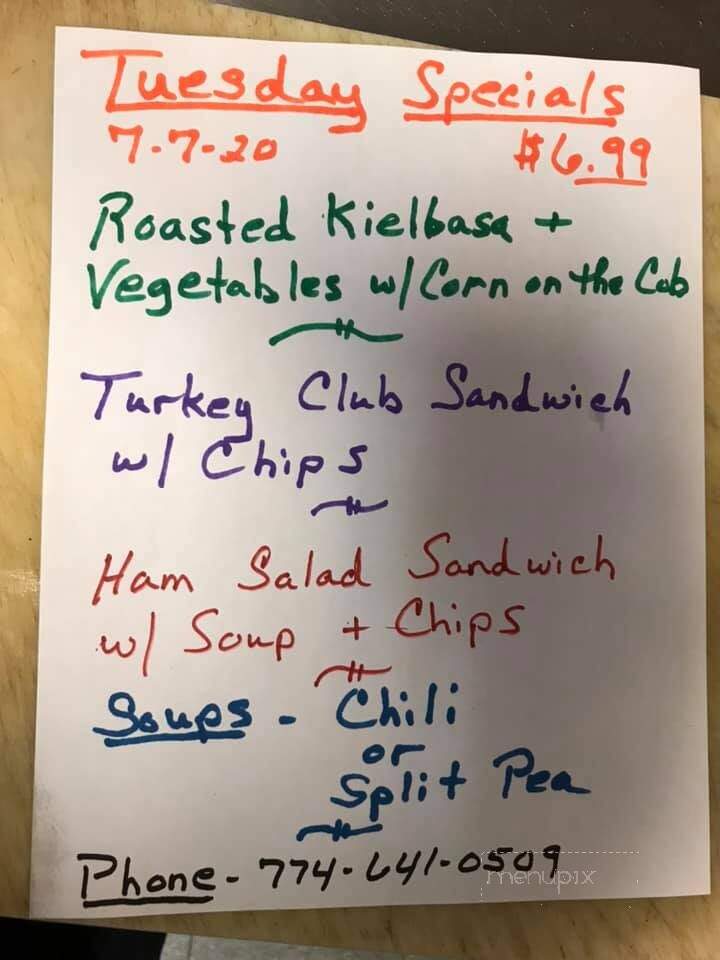 Tuesday Specials
7-7-20 $6.99
Roasted Kielbasa +
Vegetables w/ Corn on the Cob
Turkey Club Sandwich
w/ Chips
Ham Salad Sandwich
w/ Soup + Chips
Soups - Chili
or
Split Pea
Phone - 774-641-0509
menupix